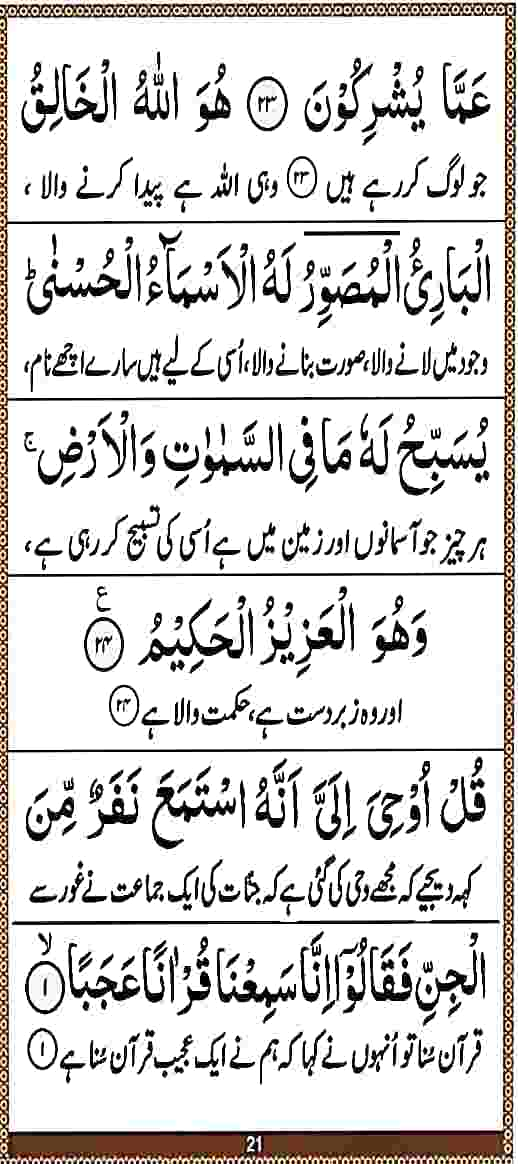 عَمَّا يُشْرِكُوْنَ ﴿۲۳﴾ هُوَ اللّٰهُ الْخَالِقُ
جو لوگ کررہے ہیں ﴿۲۳﴾ وہی اللہ ہے پیدا کرنے والا ،
الْبَارِئُ الْمُصَوِّرُ لَهُ الْاَسْمَآءُ الْحُسْنٰىؕ
وجود میں لانے والا، صورت بنانے والا، اُسی کے لیے ہیں سارے اچھے نام،
يُسَبِّحُ لَهٗ مَا فِي السَّمٰوٰتِ وَالْاَرْضِ ۚ
ہر چیز جو آسمانوں اور زمین میں ہے اُسی کی تسبیح کررہی ہے،
وَهُوَ الْعَزِيْزُ الْحَكِيْمُ ﴿۲۴﴾ ع
اور وہ زبردست ہے، حکمت والا ہے ﴿۲۴﴾
قُلْ اُوْحِيَ اِلَيَّ اَنَّهُ اسْتَمَعَ نَفَرٌ مِّنَ
کہہ دیجیے کہ مجھے وحی کی گئی ہے کہ جنّات کی ایک جماعت نے غور سے
الْجِنِّ فَقَالُوْٓا اِنَّا سَمِعْنَا قُرْاٰنًا عَجَبًا ﴿۱﴾ ۙ
قرآن سُنا تو اُنہوں نے کہا کہ ہم نے ایک عجیب قرآن سُنا ہے ﴿۱﴾
21